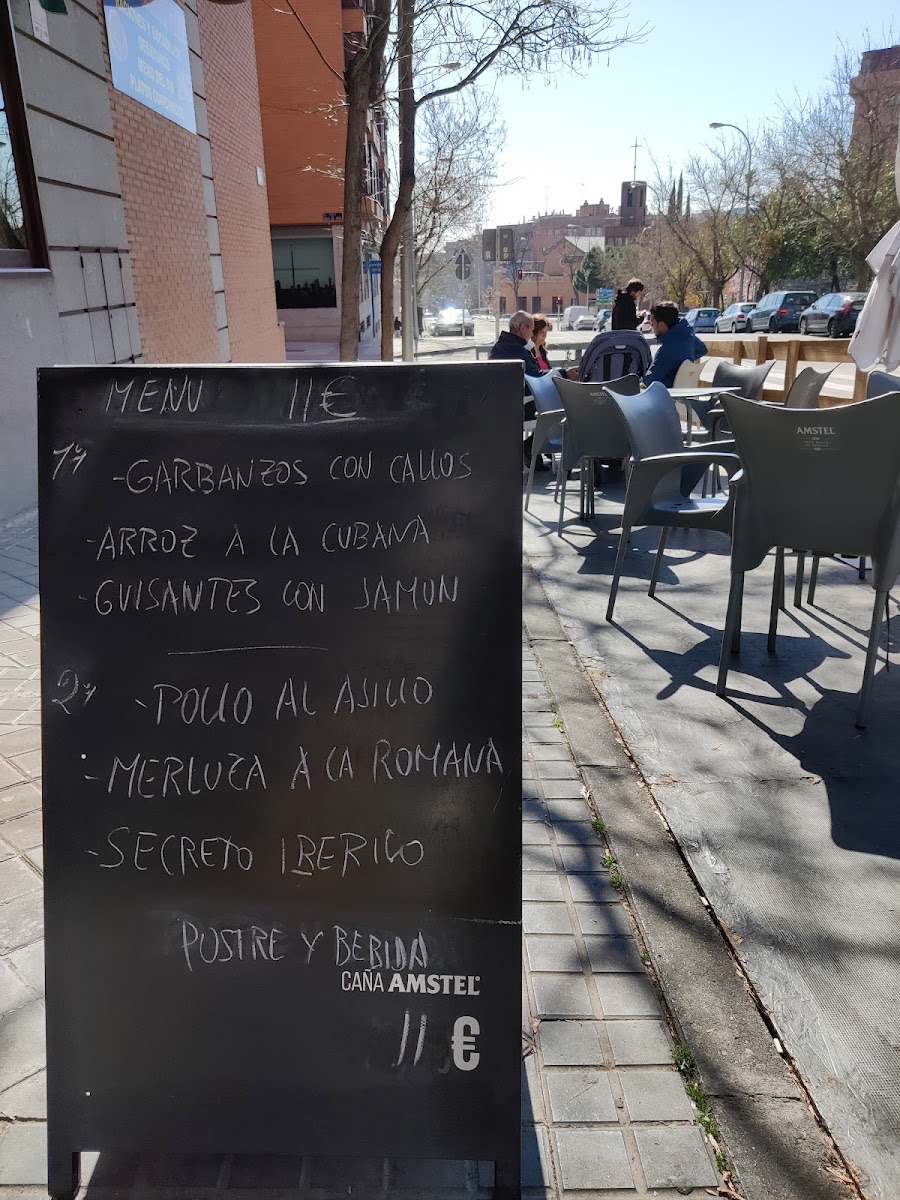 DESAYUNOS
MENÚ DEL DÍA
MENU 11€
1º
-GARBANZOS CON CALLOS
-ARROZ A LA CUBANA
-GUISANTES CON JAMON
2º
-POLLO AL ASILLO
-MERLUZA A LA ROMANA
-SECRETO IBERICO
POSTRE Y BEBIDA
CAÑA AMSTEL
11 €
AMSTEL
AMSTEL